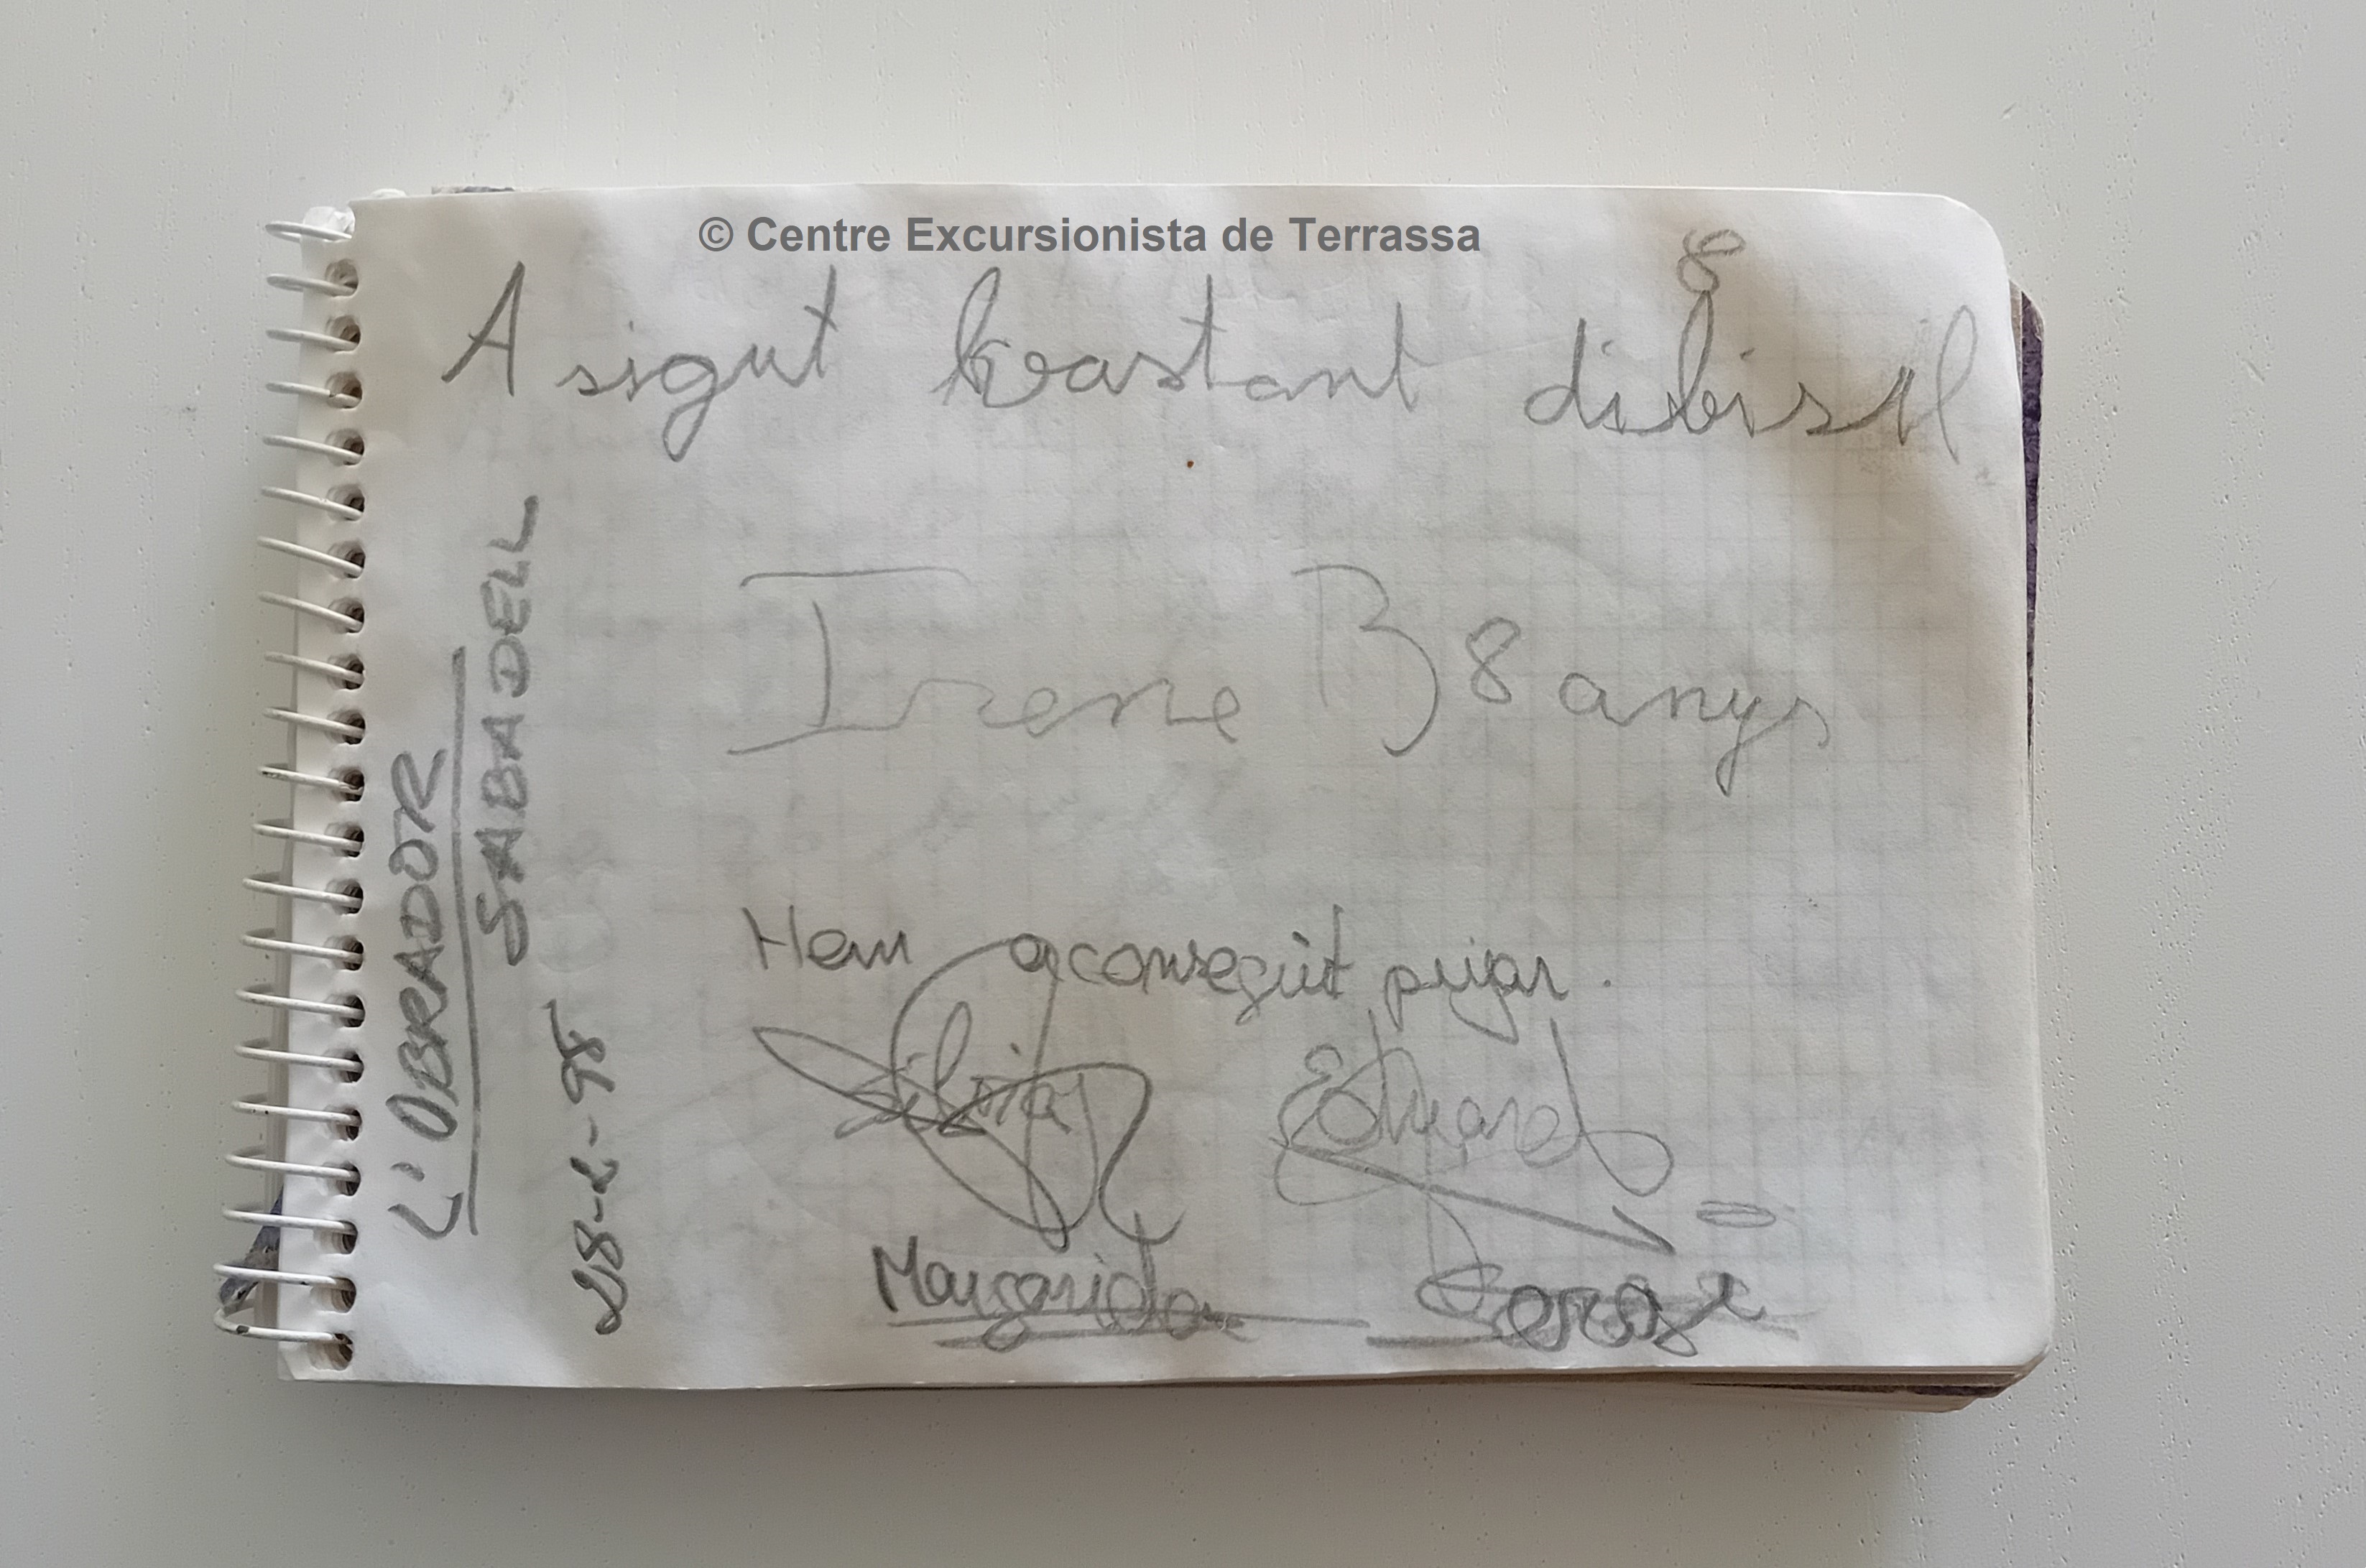 © Centre Excursionista de Terrassa
A sigut bastant dibisil
Irene B 8 anys
Hem aconseguit pujar.
Silvia Eduard
Margarida
L'OBRADOR
SABADELL
28-2-98